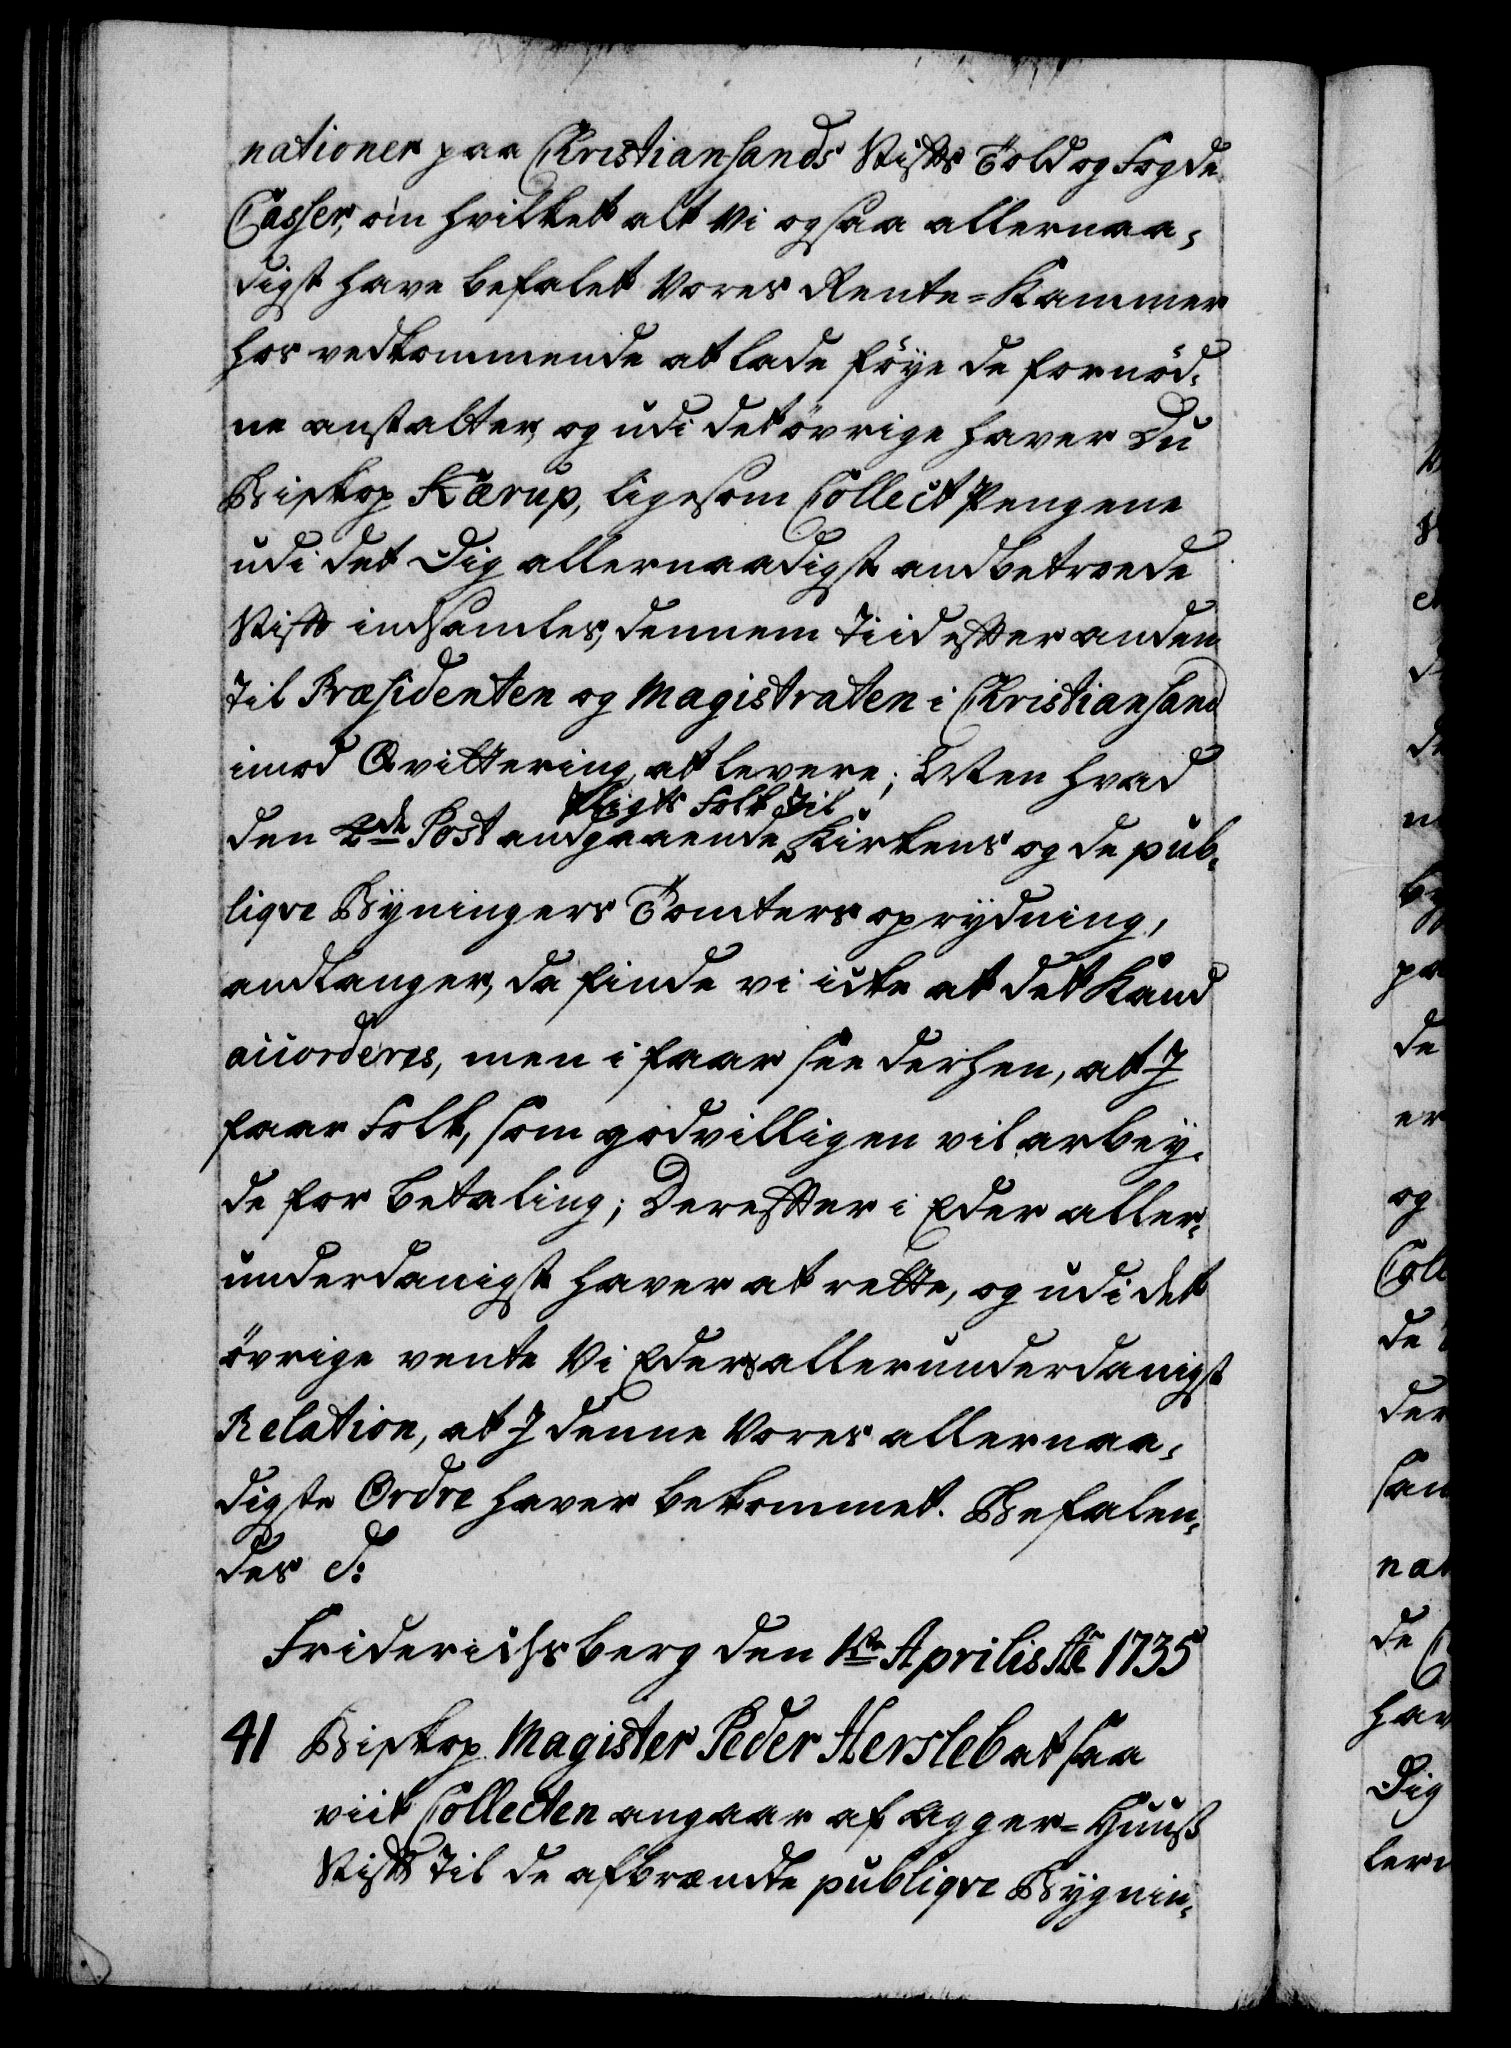 nationer paa Christiansands Stifts Told og Fogde
Casser, om hvilket alt Vi ogsaa allernaa-
digst have befalet Vores Rente-Kammer
hos vedkommende at lade föye de fornöd-
ne anstalter, og udi det övrige haver Du
Biskop Kærup, ligesom Collect Pengene
udi det Dig allernaadigst andbetroede
Stift indsamles, dennem Tiid efter anden
til Præsidenten og Magistraten i Christiansand
imod Qvittering at levere; Men hvad
Pligts Folk til
den 2de Post andgaaende Kirkens og de pub-
liqve Bÿningers Tomters oprÿdning,
andlanger, da finde vi icke at det Kand
accorderes, men i faar see derhen, at I
faar Folk, som godvilligen vil arbeÿ-
de for betaling; Derefter i Eder aller-
underdanigst haver at rette, og udi det
övrige vente Vi Eders allerunderdanigst
Relation, at I denne Vores allernaa-
digste Ordre haver bekommet. Befalen-
des d:
Friderichsberg den 1te Aprilis Ao 1735
41 Biskop Magister Peder Hersleb at saa
viit Collecten angaar af Agger-Huuß
Stift til de afbrændte publiqve Bÿgnin-